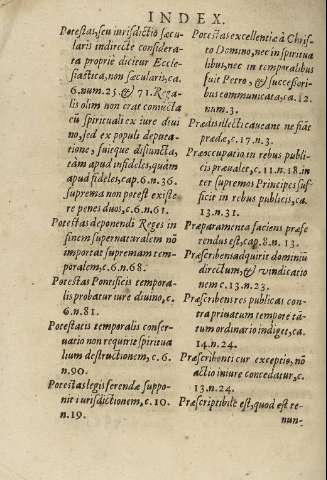 INDEX.
Potestas, seu iurisdictiò sæcu-
laris indirecte considera-
ta proprie dicitur Eccle-
siastica, non sæcularis, ca.
6. num. 25. & 71. Rega-
lis olim non erat coniūcta
cū spirituali ex iure diui
no, sed ex populi deputa-
tione, fuitque disiuncta,
eam apud infideles, quàm
apud fideles, cap. 6. n. 36.
suprema non potest existe
re penes duos, c. 6. n. 61.
Potestas deponendi Reges in
finem supernaturalem nō
importat supremam tem-
poralem, c. 6. n. 68.
Potestas Pontificis tempora-
lis probatur iure diuino, c.
6. n. 81.
Potestatis temporalis conser-
uatio non requirit spiritua
lium destructionem, c. 6.
n. 90.
Potestas legis ferendæ suppo-
nit iurisdictionem, c. 10.
n. 19.
Potestas excellentiæ à Chris-
to Domino, nec in spiritua
libus, nec in temporalibus
fuit Petro, & successori-
bus communicata, ca. 12.
num. 3.
Prædis tilecti caueant ne fiāt
præda, c. 17. n. 3.
Præoccupatio in rebus publi-
cis præualet, c. 11. n. 18. in
ter supremos Principes suf-
ficit in rebus publicis, ca.
13. n. 31.
Præparamenta faciens præfe
rendus est, cap. 8. n. 13.
Præscribens adquirit dominiū
directum, & vindicatio
nem c. 13. n. 23.
Præscribens res publicas con-
tra priuatum tempore tā-
tum ordinario indiget, ca.
14. n. 24.
Præscribenti cur exceptio, nō
actio in iure concedatur, c.
13. n. 24.
Præscriptibile est, quod est re-
nun-